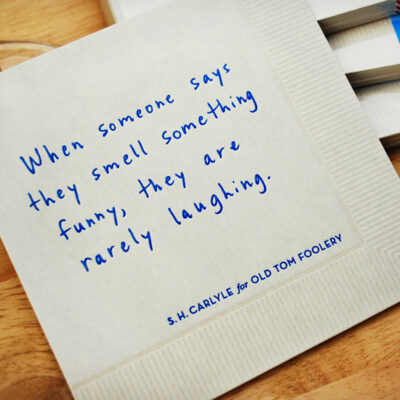 When someone says
they smell something
funny, they are
rarely laughing.
S.H. CARLYLE for OLD TOM FOOLERY